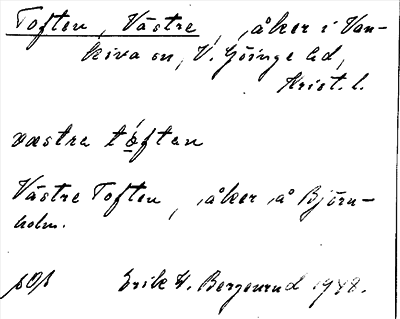 Toften, Västre, åker i Van-
kiva sn, V. Göinge hd,
Krist. l.
væstra tòften
Västre Toften, åker å Björn-
holm.
Erik H. Bergenrud 1948.